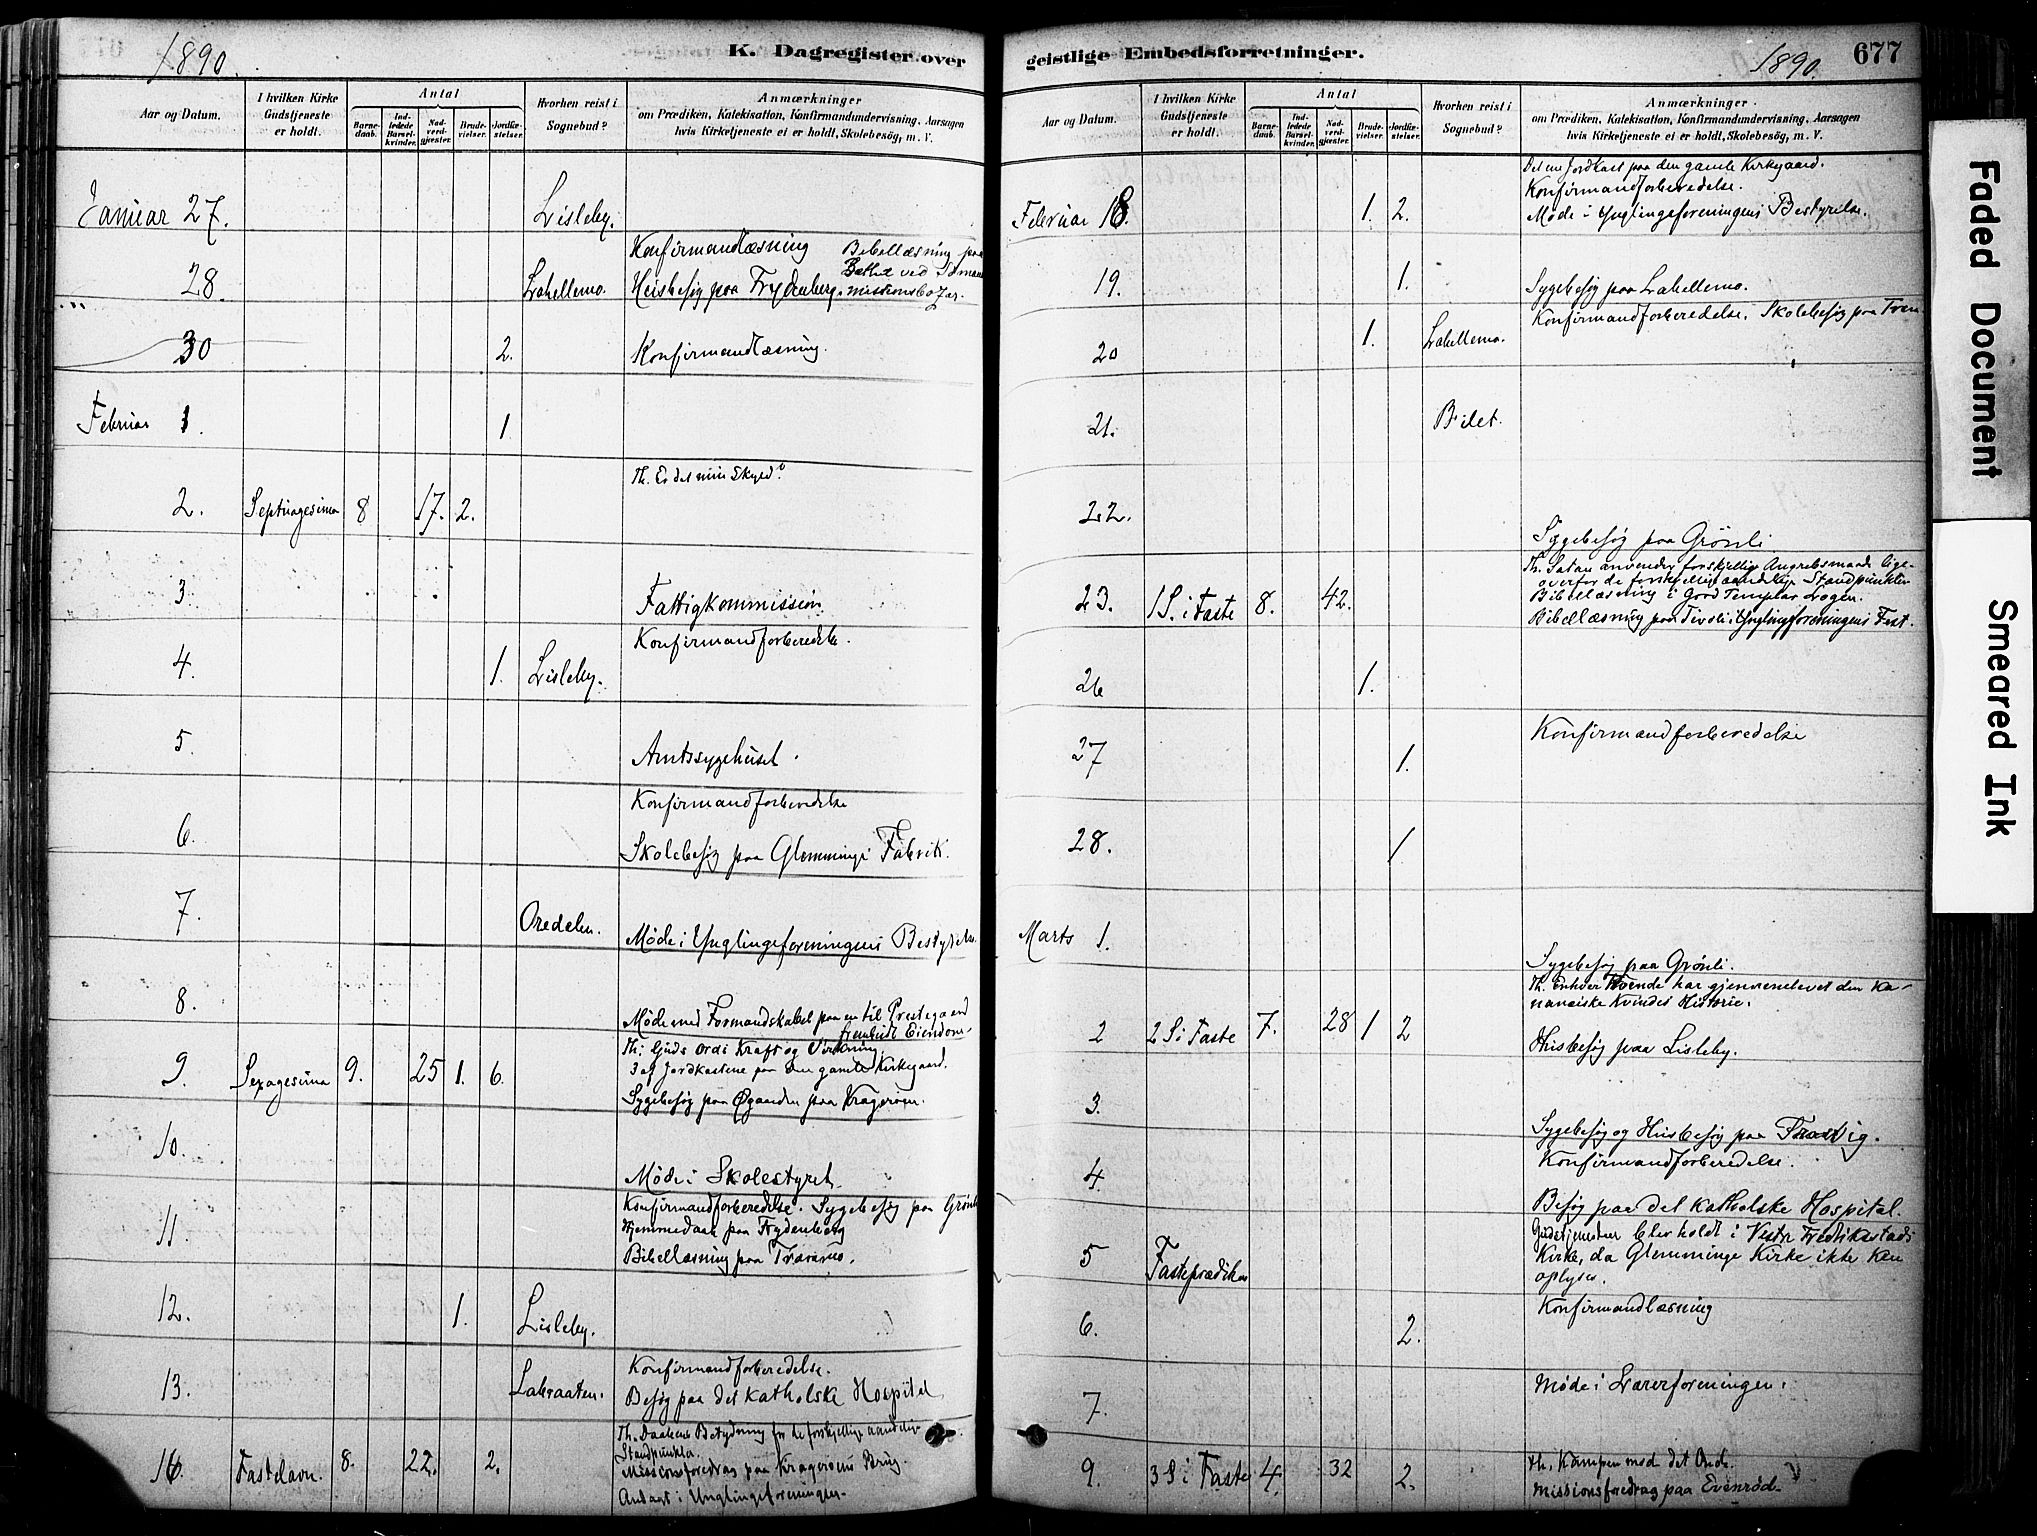 1890.
K. Dagregister over
Aar og Datum.
I hvilken Kirke Gudstjeneste er holdt.
Antal
Barnedaab.
Indledede Barselkvinder.
Nadverdgjester.
Brudevielser.
Jordfæstelser.
Hvorhen reist i Sognebud?
Anmærkninger
om Prædiken, Katekisation, Konfirmandundervisning, Aarsagen
hvis Kirketjeneste ei er holdt, Skolebesög, m. V.
Januar 27. Lisleby.
Konfirmandlæsning Bibellæsning paa
28. Labellemo. Husbesøg paa Frydenberg. missionsbazar.
30 2. Konfirmandlæsning.
Februar 1. 1
Th. Er det min Skyld?
2. Septuagesima 8 17. 2.
3. Fattigkommission
Konfirmandforberedelse.
4. 1. Lisleby.
5. Amtssygehuset.
Konfirmandforberedelse
6. Skolebesøg paa Glemminge Fabrik.
7. Oredalen. Møde i Ynglingeforeningens Bestyrelse.
8. Møde med Formandskabet paa en til Prestegaard
frembudt Eiendom.
Th: Guds Ords Kraft og Virkning
9. Sexagesima 9. 25 1. 6. 3 af Jordkastene paa den gamle Kirkegaard.
Sygebesøg paa Øgaarden paa Kragerøen.
10. Møde i Skolestyret.
Konfirmandforberedelse. Sygebesøg paa Grønli
11. Hjemmedaab paa Frydenberg
Bibellæsning paa Traramo.
12. 1. Lisleby.
Konfirmandforberedelse.
13. Labraaten. Besøg paa det katholske Hospital
Th. Daabens Betydning for de forskjellige aandelige
Standpunkter.
16 Fastelavn. 8. 22. 2. Missionsforedrag paa Kragerøens Brug.
Andagt i Ynglingeforeningen.
geistlige Embedsforretninger.
1890.
677
Aar og Datum.
I hvilken Kirke Gudstjeneste er holdt.
Antal
Barnedaab.
Indledede Barselkvinder.
Nadverdgjester.
Brudevielser.
Jordfæstelser.
Hvorhen reist i Sognebud?
Anmærkninger.
om Prædiken, Katekisation, Konfirmandundervisning, Aarsagen
hvis Kirketjeneste ei er holdt, Skolebesög, m. V.
Det ene Jordkast paa den gamle Kirkegaard.
Konfirmandforberedelse.
Februar 18. 1. 2. Møde i Ynglingeforeningens Bestyrelse.
19. 1. Sygebesøg paa Labellemo.
Konfirmandforberedelse. Skolebesøg paa
20 1. Labellemo.
21. Bilet.
22. Sygebesøg paa Grønli
Th. Satan anvender forskjellig Angrebsmaade lige-
overfor de forskjellige aandelige Standpunkter
Bibellæsning i Good Templar Logen.
23. 1 S. i Faste 8. 42. Bibellæsning paa Tivoli i Ynglingeforeningens Fest.
26 1.
Konfirmandforberedelse
27 1.
28. 1
Marts 1. Sygebesøg paa Grønli.
Th. Enhver Troende har gjennemlevet den Ka-
nanæiske Kvindes Historie.
2 2 S. i Faste 7. 28 1 2 Husbesøg paa Lisleby.
3. Sygebesøg og Husbesøg paa Trosvig.
Konfirmandforberedelse.
4. Besøg paa det katholske Hospital.
Gudstjenesten blev holdt i Vestre Fredriksstads
5 Fasteprædiken Kirke, da Glemminge Kirke ikke kan
oplyses.
Konfirmandlæsning
6. 2.
7. Møde i Lærerforeningen.
9. 3 S i Faste 4. 32 2. Th. Kampen mod det Onde.
Missionsforedrag paa Evenrød.
Faded Document
Smeared Ink